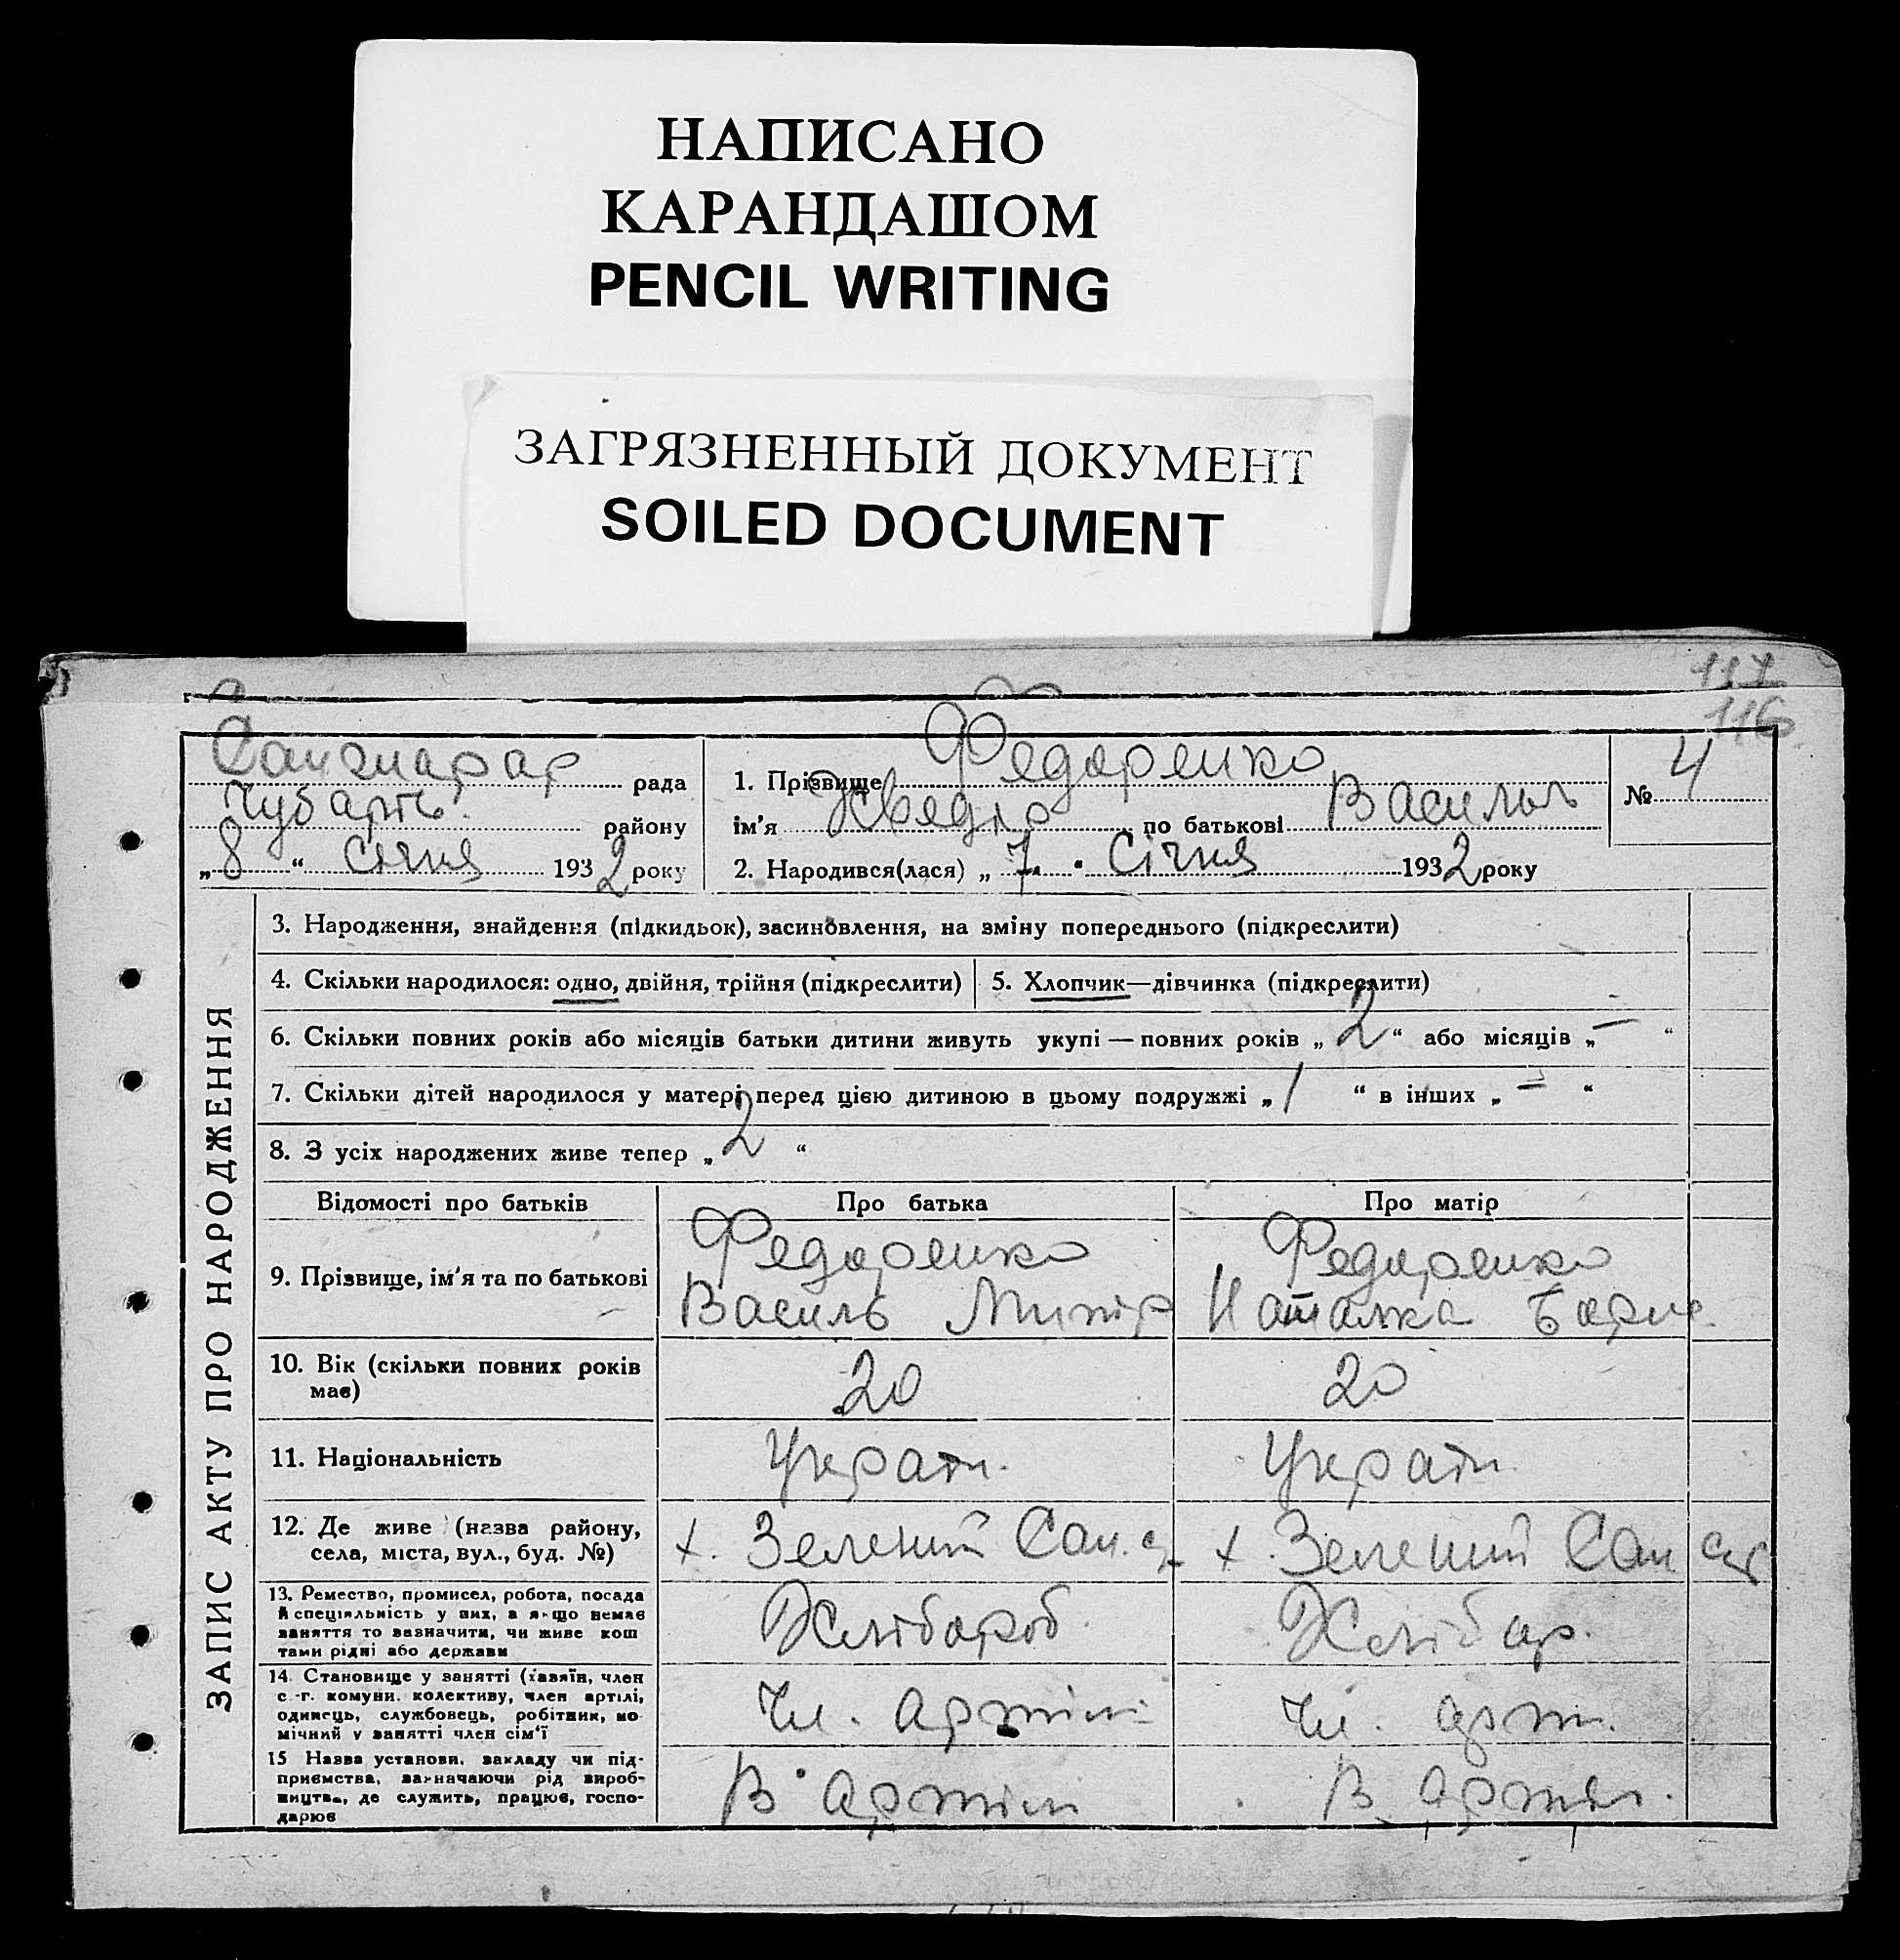 НАПИСАНО
КАРАНДАШОМ
PENCIL WRITING
ЗАГРЯЗНЕННЫЙ ДОКУМЕНТ
SOILED DOCUMENT
117
116
рада
району
„ 8 “ Січня 1932 року
1. Прізвище Федоренко
ім’я по батькові Василь
2. Народився(лася) „ 7 “ Січня 1932 року
№ 4
ЗАПИС АКТУ ПРО НАРОДЖЕННЯ
3. Народження, знайдення (підкидьок), засиновлення, на зміну попереднього (підкреслити)
4. Скільки народилося: одно, двійня, трійня (підкреслити)
5. Хлопчик—дівчинка (підкреслити)
6. Скільки повних років або місяців батьки дитини живуть укупі — повних років „ 2 “ або місяців „ — “
7. Скільки дітей народилося у матері перед цією дитиною в цьому подружжі „ 1 “ в інших „ — “
8. З усіх народжених живе тепер „ 2 “
Відомості про батьків Про батька Про матір
9. Прізвище, ім’я та по батькові
Федоренко
Василь
Федоренко
Наталка
10. Вік (скільки повних років
має)
20
20
11. Національність
Україн.
Україн.
12. Де живе (назва району,
села, міста, вул., буд. №)
х. Зелений
х. Зелений
13. Ремество, промисел, робота, посада
й спеціяльність у них, а якщо немає
заняття то зазначити, чи живе кош
тами рідні або держави
Хлібороб.
Хлібор.
14. Становище у занятті (хазяїн, член
с.-г. комуни, колективу, член артілі,
одинець, службовець, робітник, по
мічний у занятті член сім’ї
Чл. артіл
Чл. арт.
15 Назва установи, закладу чи під-
приємства, зазначаючи рід вироб-
ництва, де служить, працює, госпо-
дарює
В артіл
В артіл.